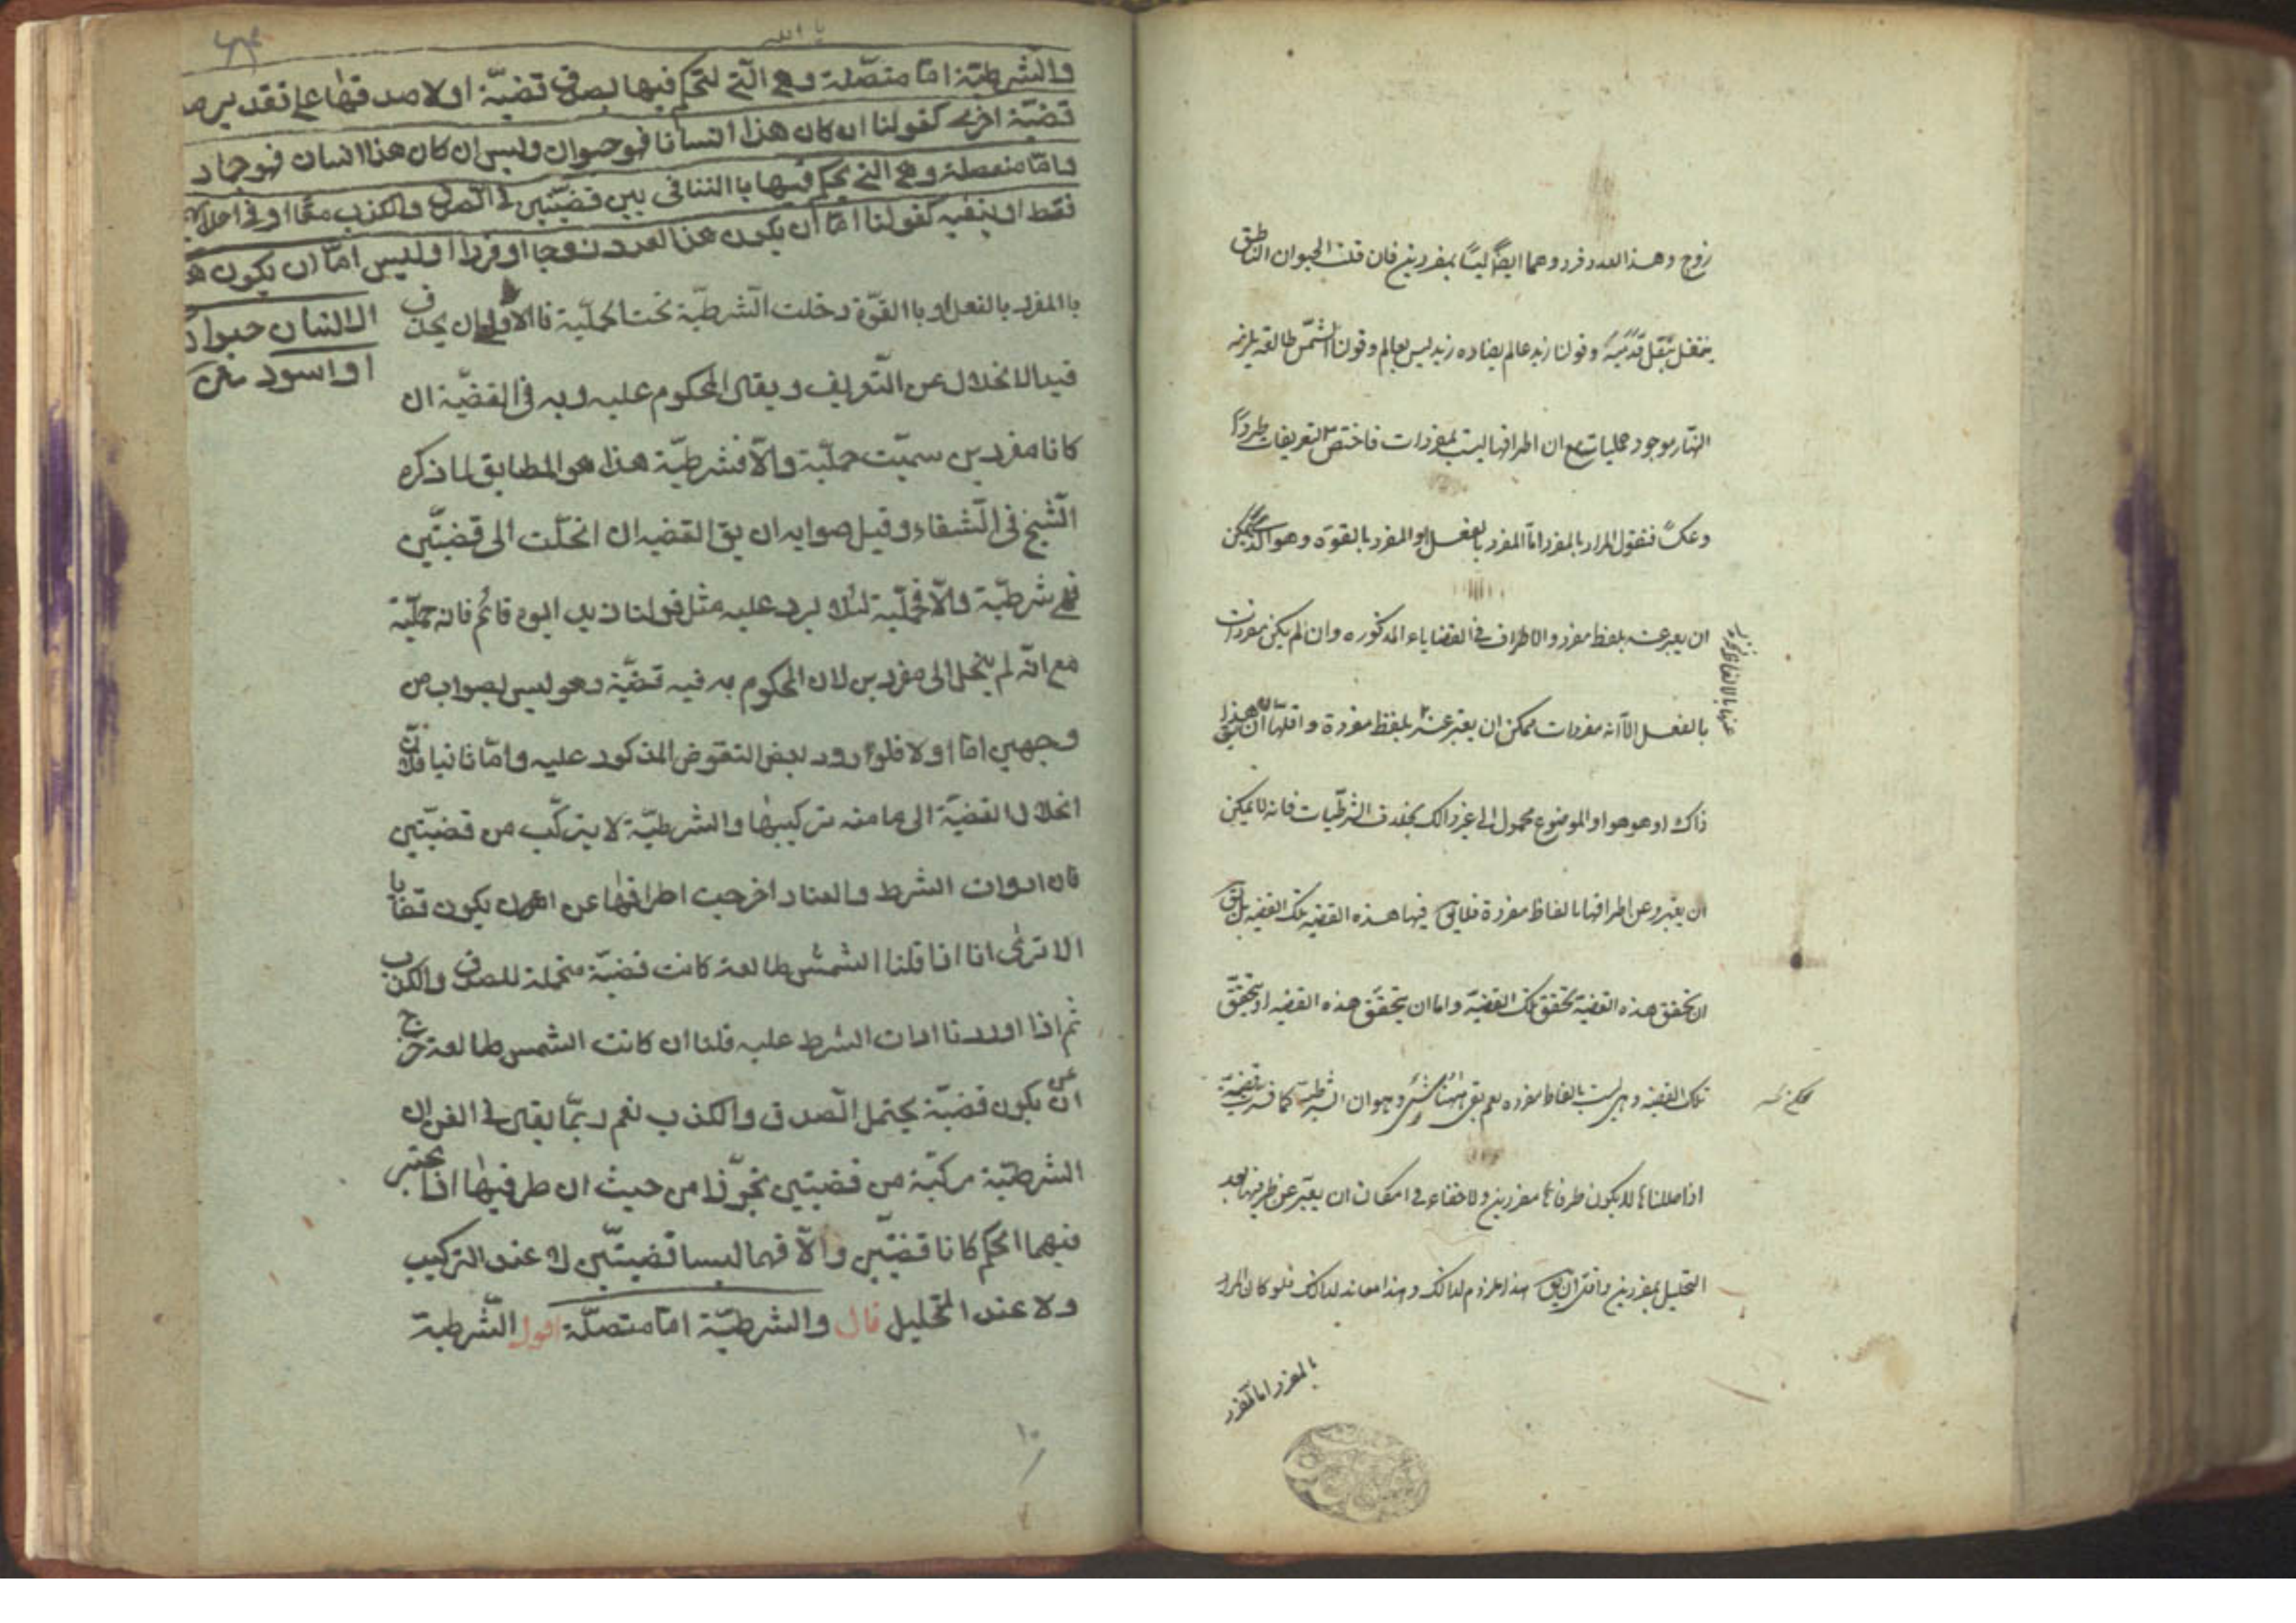 زوج وهذا العدد فرد وهما ايضاً ليسا بمفردين فان قلت الحيوان الناطق
ينتقل بنقل قدميه وقولنا زيد عالم يضاده زيد ليس بعالم وقولنا الشمس طالعة يلزمه
النهار موجود حمليات مع ان اطرافها ليست بمفردات فاختص التعريفات طرداً
وعكساً فنقول المراد بالمفرد اما المفرد بالفعل او المفرد بالقوة وهو الذى يمكن
ان يعبر عنه بلفظ مفرد والاطراف فى القضاياء المذكوره وان لم يكن مفردات
بالفعل الا انه مفردات ممكن ان يعبر عنه بلفظ مفردة واقلها ان يق هذا
ذاك او هو هو او الموضوع محمول الى غير ذالك بخلاف الشرطيات فانه لا يمكن
ان يعبر وعن اطرافها بالفاظ مفردة فلا يق فيها هذه القضيه تلك القضيه بل يق
ان تحقق هذه القضية تحقق تلك القضية واما ان يتحقق هذه القضيه او يتحقق
تلك القضيه وهى ليست بالفاظ مفرده نعم بقى ههنا شئ وهو ان الشرطية كما فسرت قضية
اذا حللناها لا يكون طرفاها مفردين ولا خفاء فى امكان ان يعبر عن طرفيها بعد
التحليل بمفردين واقله ان يق هذا ملزوم لذالك وهذا معاند لذالك فلو كان المراد
بالمفرد اما المفرد
يا الله
والشرطية اما متصلة وهى التى يحكم فيها بصدق قضية اولا صدقها على تقدير صد
قضية اخرى كقولنا ان كان هذا انسانا فهو حيوان وليس ان كان هذا انسان فهو جماد
واما منفصلة وهى التى يحكم فيها باالتنافى بين قضيتين فى الصدق والكذب معا او فى احدهما
فقط او بنفيه كقولنا اما ان يكون هذا العدد زوجا او فردا او ليس اما ان يكون هذا
الانسان حيوان
او اسود
باالمفرد بالفعل او باالقوة دخلت الشرطية تحت الحملية فاالاولى ان يحذف
قيد الانحلال عن التعريف ويقال المحكوم عليه وبه فى القضية ان
كانا مفردين سميت حملية والا فشرطية هذا هو المطابق لما ذكره
الشيخ فى الشفاء وقيل صوابه ان يق القضيه ان انحلت الى قضيتين
فهى شرطية والا فحملية لئلا يرد عليه مثل قولنا زيد ابوه قائم فانه حملية
مع انه لم ينحل الى مفردين لان المحكوم به فيه قضية وهو ليس بصواب من
وجهين اما اولا فلورود بعض النقوض المذكور عليه واما ثانيا فلان
انحلال القضية الى ما منه تركيبها والشرطية لا يتركب من قضيتين
فان ادوات الشرط والعناد اخرجت اطرافها عن ان يكون قضايا
الا ترى انا اذا قلنا الشمس طالعة كانت قضية محتملة للصدق والكذب
ثم اذا اوردنا ادات الشرط عليه قلنا ان كانت الشمس طالعة خرج
عن ان يكون قضية يحتمل الصدق والكذب نعم ربما يقال فى الفن ان
الشرطية مركبة من قضيتين تجوزا من حيث ان طرفيها اذا اعتبر
فيهما الحكم كانا قضيتين والا فهما ليسا قضيتين لا عند التركيب
ولا عند التحليل قال والشرطية اما متصلة اقول الشرطية